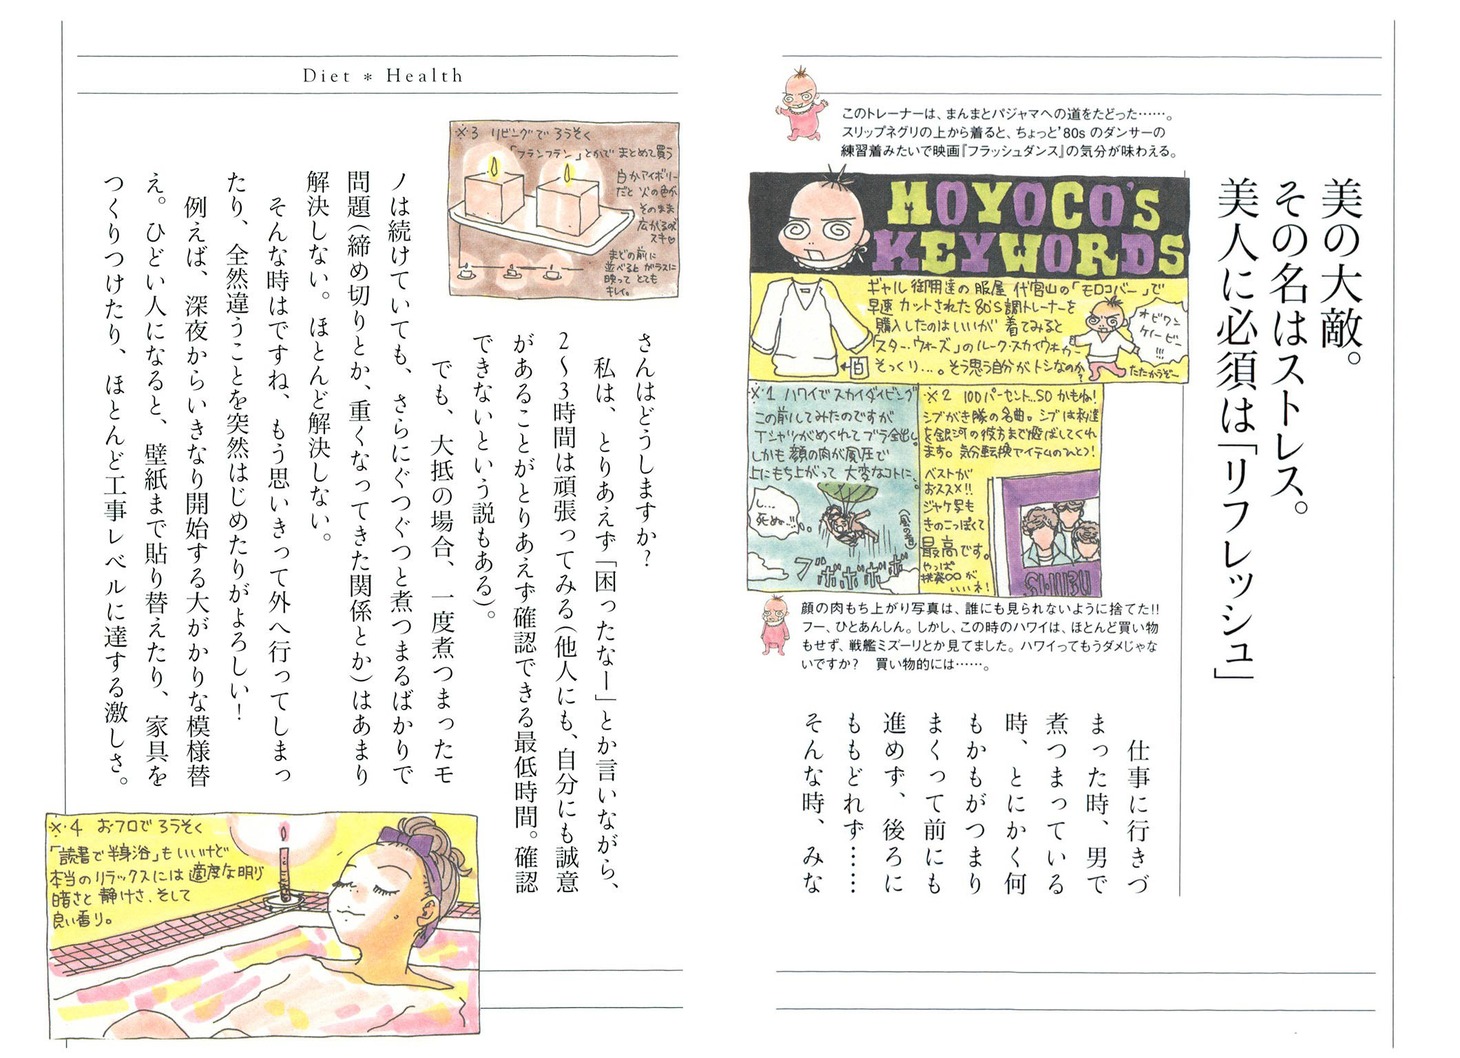 美の大敵。
その名はストレス。
美人に必須は「リフレッシュ」
このトレーナーは、まんまとパジャマへの道をたどった……。
スリップネグリの上から着ると、ちょっと'80s のダンサーの
練習着みたいで映画『フラッシュダンス』の気分が味わえる。
MOYOCO'S
KEYWORDS
ギャル御用達の服屋 代官山の「モロコバー」で
早速カットされた80'S調トレーナーを
購入したのはいいが 着てみると
「スター・ウォーズ」のルーク・スカイウォーカー
そっくり…。そう思う自分がトシなのか?
白
オビワン
ケノービー
!!!
たたかうぞー
※1 ハワイでスカイダイビング
この前してみたのですが
Tシャツがめくれてブラ全出し。
しかも顔の肉が風圧で
上にもち上がって 大変なコトに、
し…
死ぬ…!!
(風の音)
ブボボボボ
※2 100パーセント…SOかもね!
シブがき隊の名曲。シブは私達
を銀河の彼方まで飛ばしてくれ
ます。気分転換アイテムのひとつ!
ベストが
おススメ!!
ジャケ写も
きのこっぽくて
最高です。
やっぱ
いいネ!
SHIBU
顔の肉もち上がり写真は、誰にも見られないように捨てた!!
フー、ひとあんしん。しかし、この時のハワイは、ほとんど買い物
もせず、戦艦ミズーリとか見てました。ハワイってもうダメじゃな
いですか? 買い物的には……。
仕事に行きづ
まった時、男で
煮つまっている
時、とにかく何
もかもがつまり
まくって前にも
進めず、後ろに
ももどれず……
そんな時、みな
Diet * Health
※3 リビングで ろうそく
「フランフラン」とかで まとめて買う
白かアイボリー
だと 火の色が
そのまま
広がるので
スキ♡
まどの前に
並べると ガラスに
映って とても
キレイ。
さんはどうしますか?
私は、とりあえず「困ったなー」とか言いながら、
2〜3時間は頑張ってみる(他人にも、自分にも誠意
があることがとりあえず確認できる最低時間。確認
できないという説もある)。
でも、大抵の場合、一度煮つまったモ
ノは続けていても、さらにぐつぐつと煮つまるばかりで
問題(締め切りとか、重くなってきた関係とか)はあまり
解決しない。ほとんど解決しない。
そんな時はですね、もう思いきって外へ行ってしまっ
たり、全然違うことを突然はじめたりがよろしい!
例えば、深夜からいきなり開始する大がかりな模様替
え。ひどい人になると、壁紙まで貼り替えたり、家具を
つくりつけたり、ほとんど工事レベルに達する激しさ。
※4 おフロで ろうそく
「読書で半身浴」もいいけど
本当のリラックスには適度な明り
暗さと 静けさ、そして
良い香り。